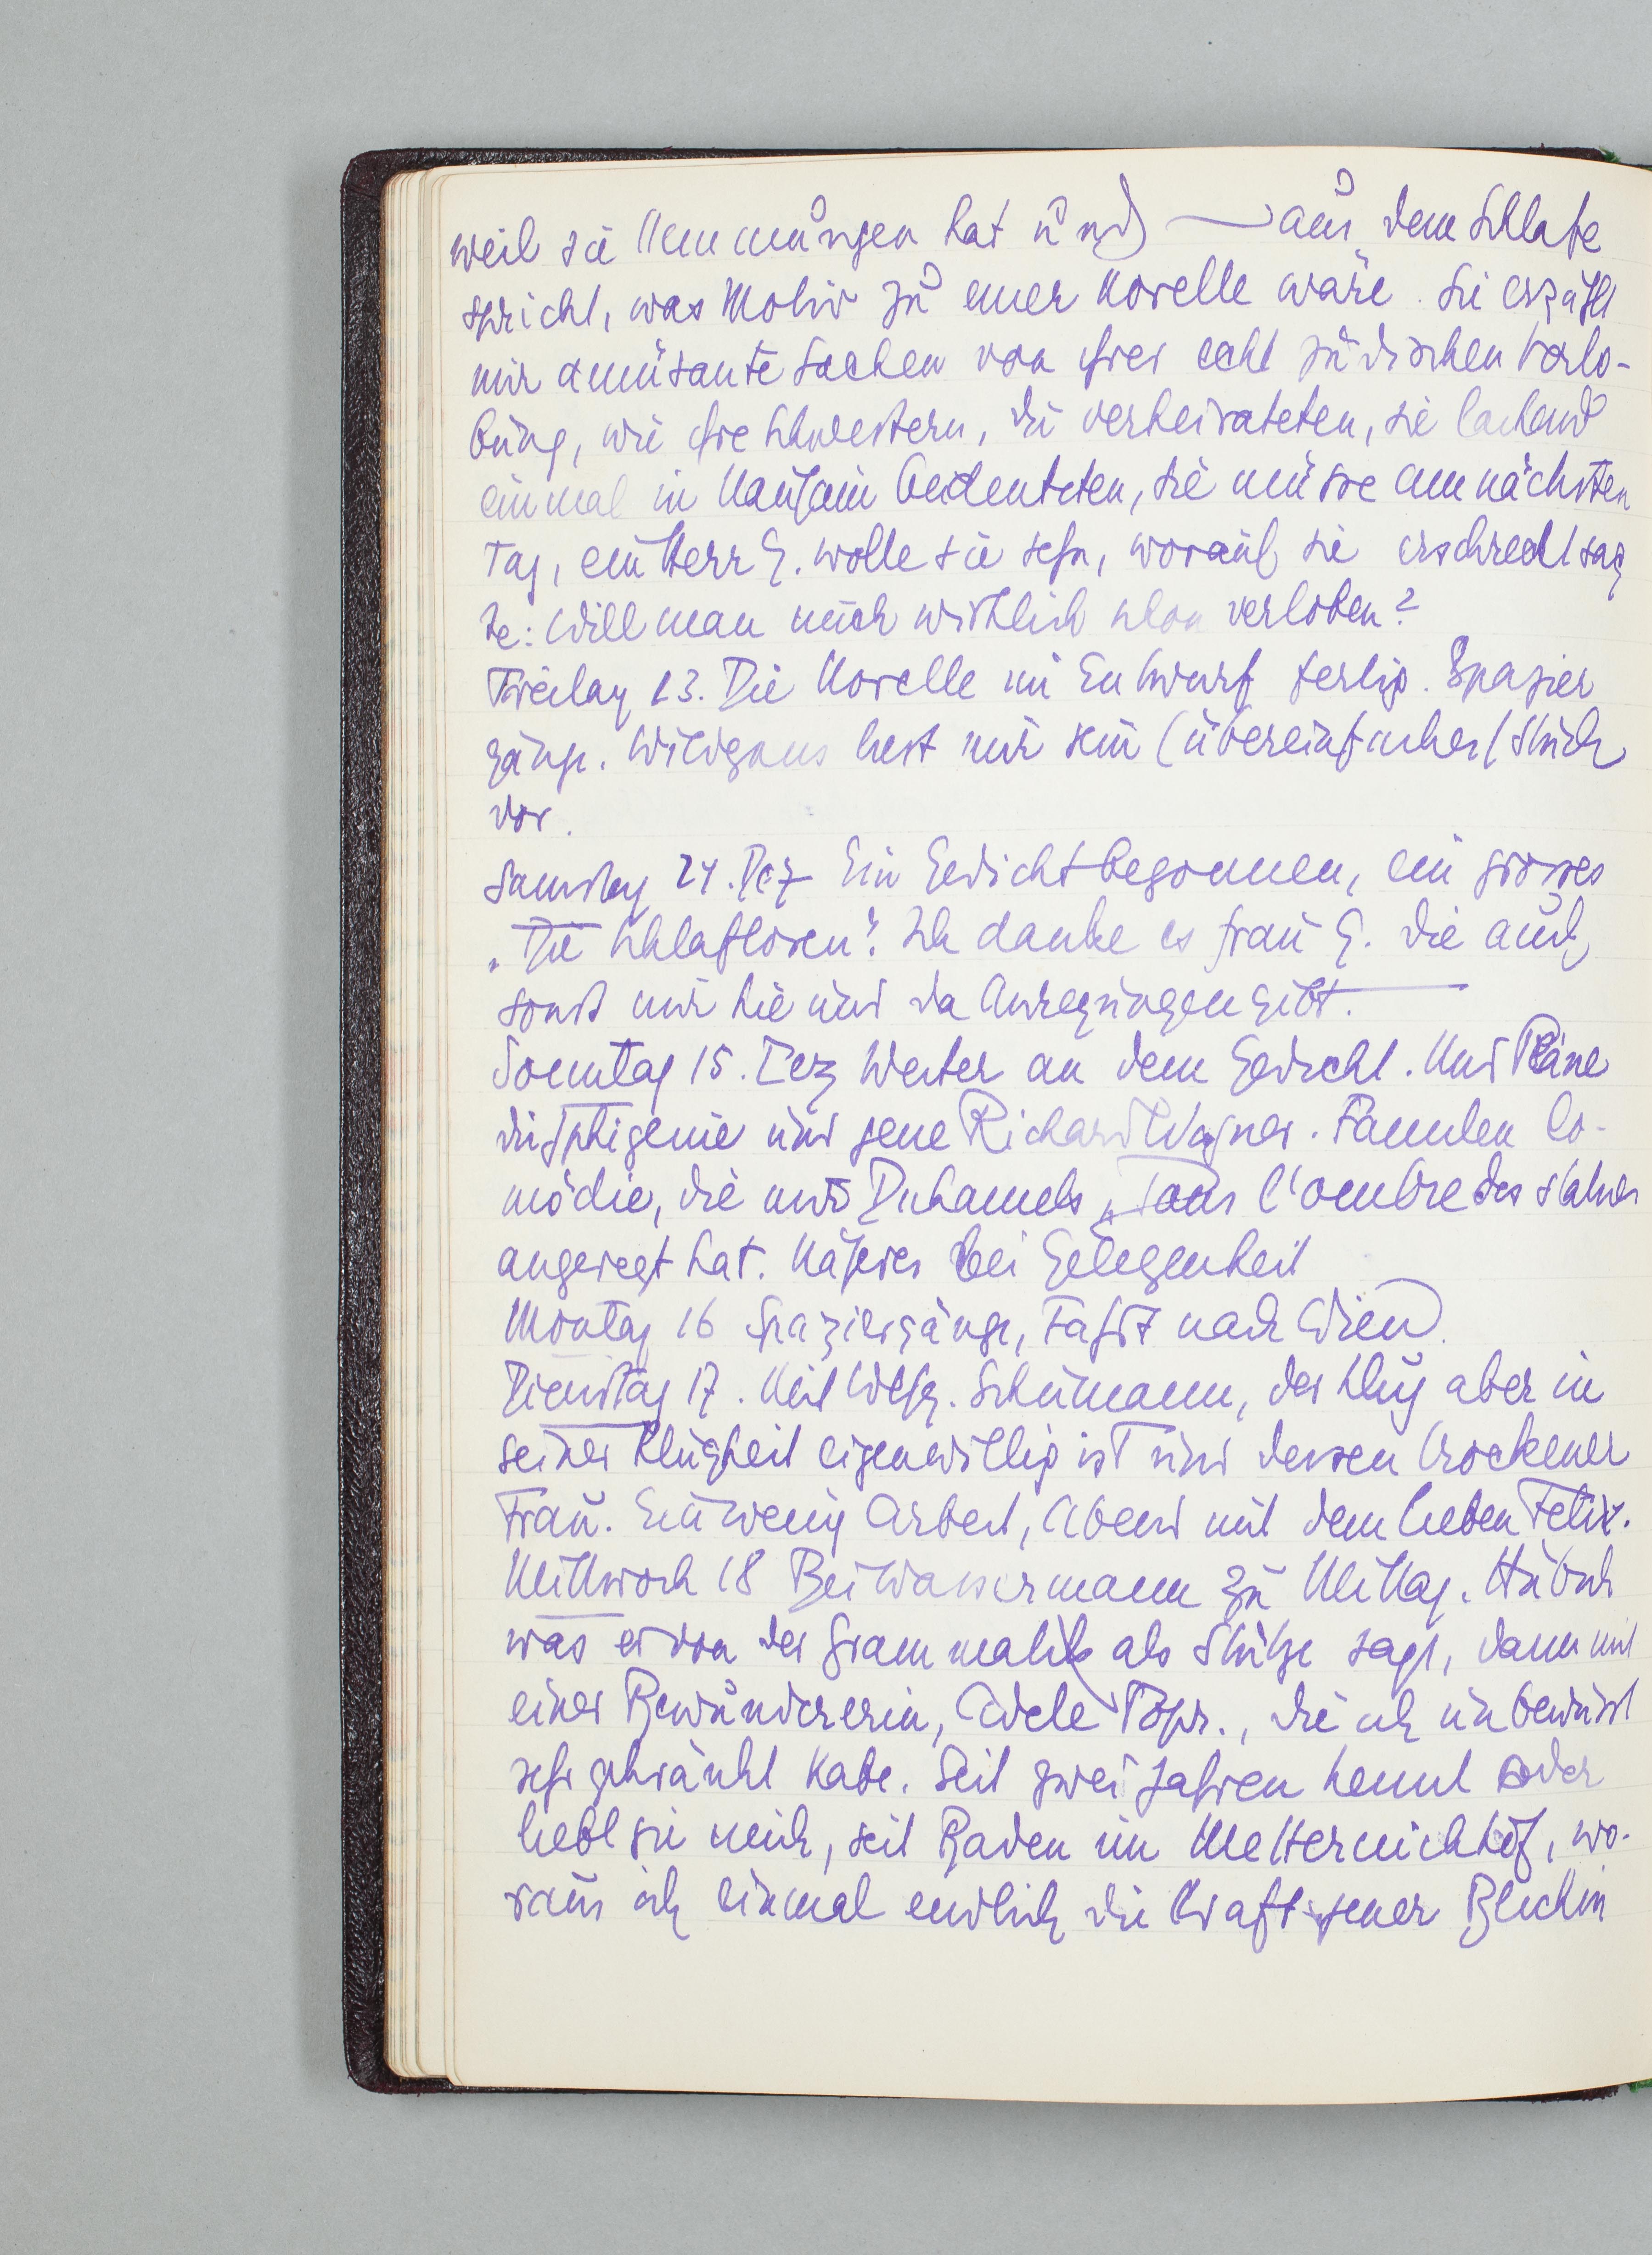 weil sie Hemmungen hat und — aus dem Schlafe
spricht, was Motiv zu einer Novelle wäre. Sie erzählt
mir amüsante Sachen von ihrer echt jüdischen Verlo-
bung, wie ihre Schwestern, die verheirateten, sie lachend
einmal in bedeuteten, sie müsse am nächsten
Tag, ein Herr G. wolle sie sehn, worauf sie erschreckt sag
te: Will man mich wirklich schon verloben?
Freitag 13. Die Novelle im Entwurf fertig. Spazier
gänge. Wildgans liest mir sein (übereinfaches) Stück
vor.
Samstag 14. Dez Ein Gedicht begonnen, ein grosses
„Die Schlaflosen“. Ich danke es Frau G. die auch
sonst mir hie und da Anregungen gibt.
Sonntag 15. Dez Weiter an dem Gedicht. Und Pläne
die Iphigenie und jene Richard Wagner. Familien Co-
mödie, die mir Duhamels „Dans l'ombre des statues
angeregt hat. Näheres bei Gelegenheit
Montag 16 Spaziergänge, Fahrt nach Wien.
Dienstag 17. Mit Wolfg. Schumann, der klug aber in
seiner Klugheit eigenwillig ist und dessen trockener
Frau. Ein wenig Arbeit, Abend mit dem lieben Felix.
Mittwoch 18 Bei Wassermann zu Mittag. Hübsch
was er von der Grammatik als Stütze sagt, dann mit
einer Bewundererin, Adele Topr., die ich unbewusst
sehr gekränkt habe. Seit zwei Jahren kennt oder
liebt sie mich, seit Baden im Metternichhof, wo-
raus ich einmal endlich die Kraft jener